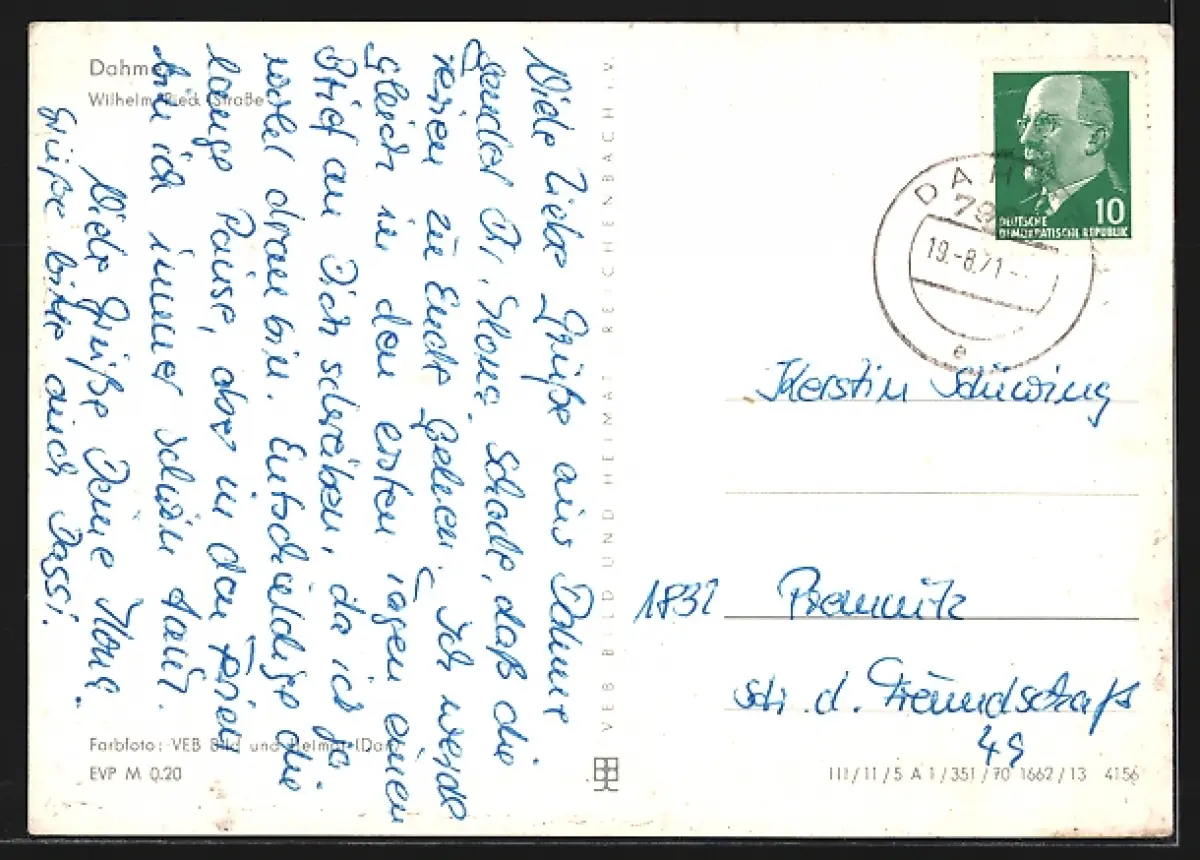 Dahme
Wilhelm-Pieck-Straße
Viele liebe Grüße aus Dahme
sendet Dir, Ilona. Schade, daß die
Ferien zu Ende gehen. Ich werde
gleich in den ersten Tagen einen
Brief an Dich schreiben, da ich ja
wohl dran bin. Entschuldige die
lange Pause, aber in den Ferien
bin ich immer schön faul.
Viele Grüße Deine Ilona.
Grüße bitte auch Dassi.
VEB BILD UND HEIMAT REICHENBACH I. V.
Farbfoto: VEB Bild und Heimat (Dan)
EVP M 0.20
10
DEUTSCHE
DEMOKRATISCHE REPUBLIK
DAHM
79
19.-8.71-
e
Kerstin Schüwing
1832 Premnitz
Str. d. Freundschaft
49
III/11/5 A 1/351/70 1662/13 4156